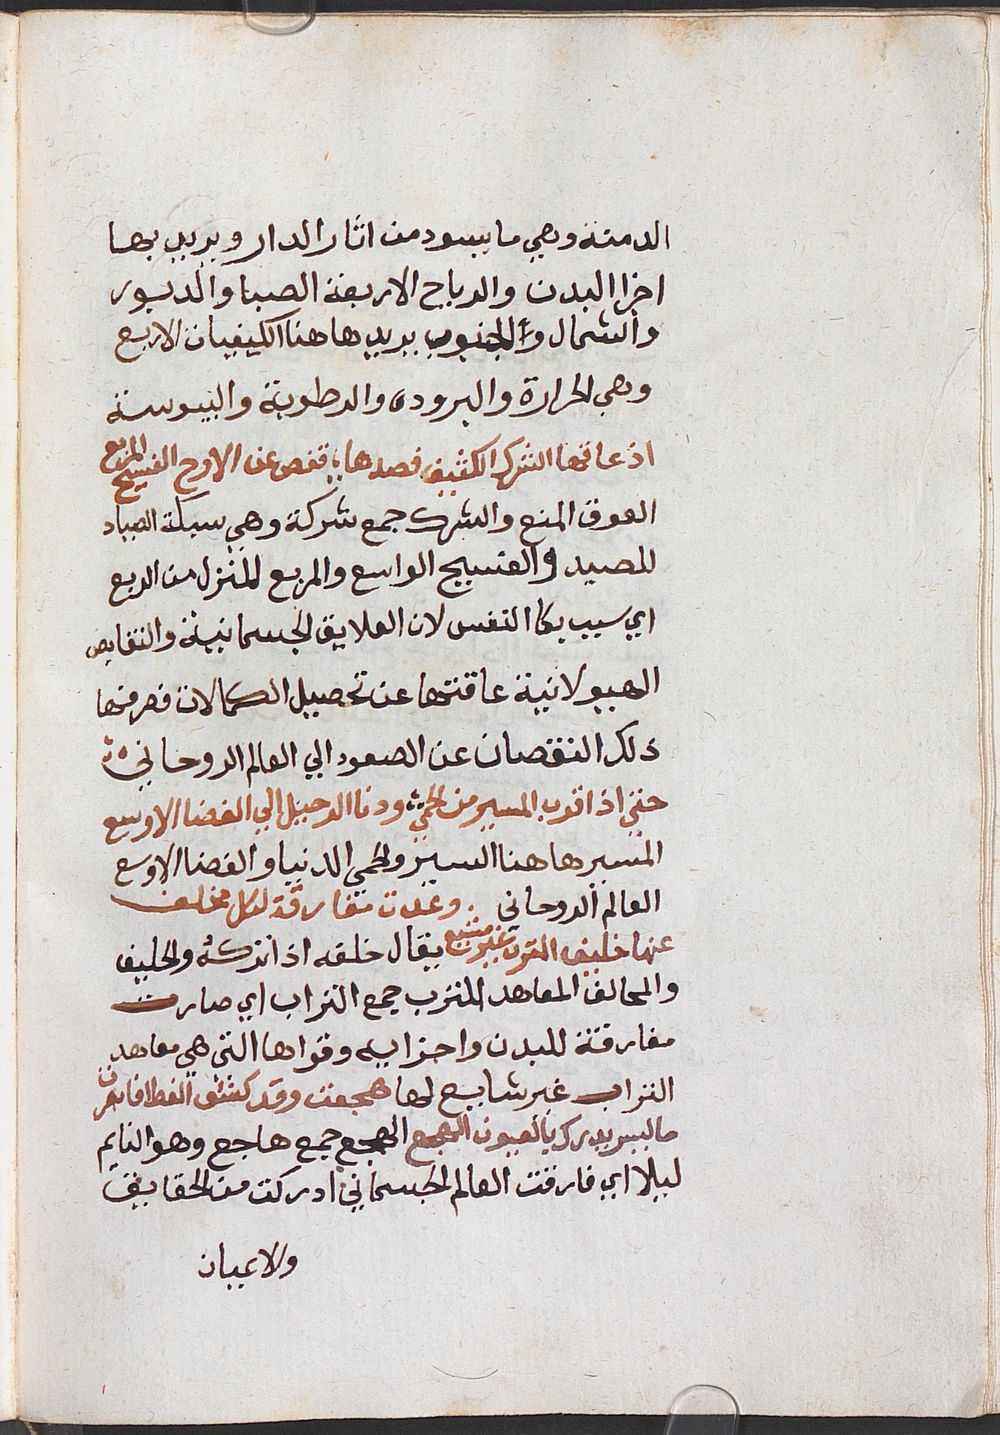 الدمنة وهي ما يسود من اثار الدار ويريد بها
اجزا البدن والرياح الاربعة الصبا والدبور
والشمال والجنوب يريد هاهنا الكيفيات الاربع
وهي الحرارة والبروده والرطوبة واليبوسة
اذ عاقها الشرك الكثيف فصدها قفص عن الاوج الفسيح المربع
العوق المنع والشرك جمع شركة وهي سبكة الصياد
للمصيد والفسيح الواسع والمربع المنزل من الربع
اي سبب بكا النفس لان العلايق الجسمانية والنقايص
الهيولانية عاقتها عن تحصيل الكمالات فصرفتها
ذلك النقصان عن الصعود الي العالم الروحاني
حتي اذا قرب المسير من الحمي ودنا الرحيل الي الفضا الاوسع
المسير هاهنا السير والحمي الدنيا والفضا الاوسع
العالم الروحاني وغدت مفارقة لكل مخلف
عنها خليف الترب غير مشيع يقال خلفه اذا تركه والخليف
والمحالف المعاهد الترب جمع التراب اي صارت
مفارقة للبدن واجزايه وقواها التي هي معاهد
التراب غير شايع لها هجعت وقد كشف الغطا فابصرت
ما ليس يدرك بالعيون الهجع الهجع جمع هاجع وهو النايم
ليلا اي فارقت العالم الجسماني ادركت من الحقايق
والاعيان